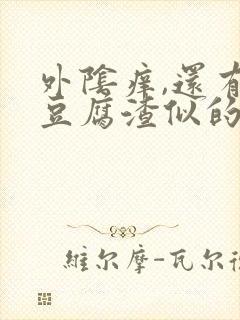 外陰痒,還有
豆腐渣似的
維尔摩-瓦尔德